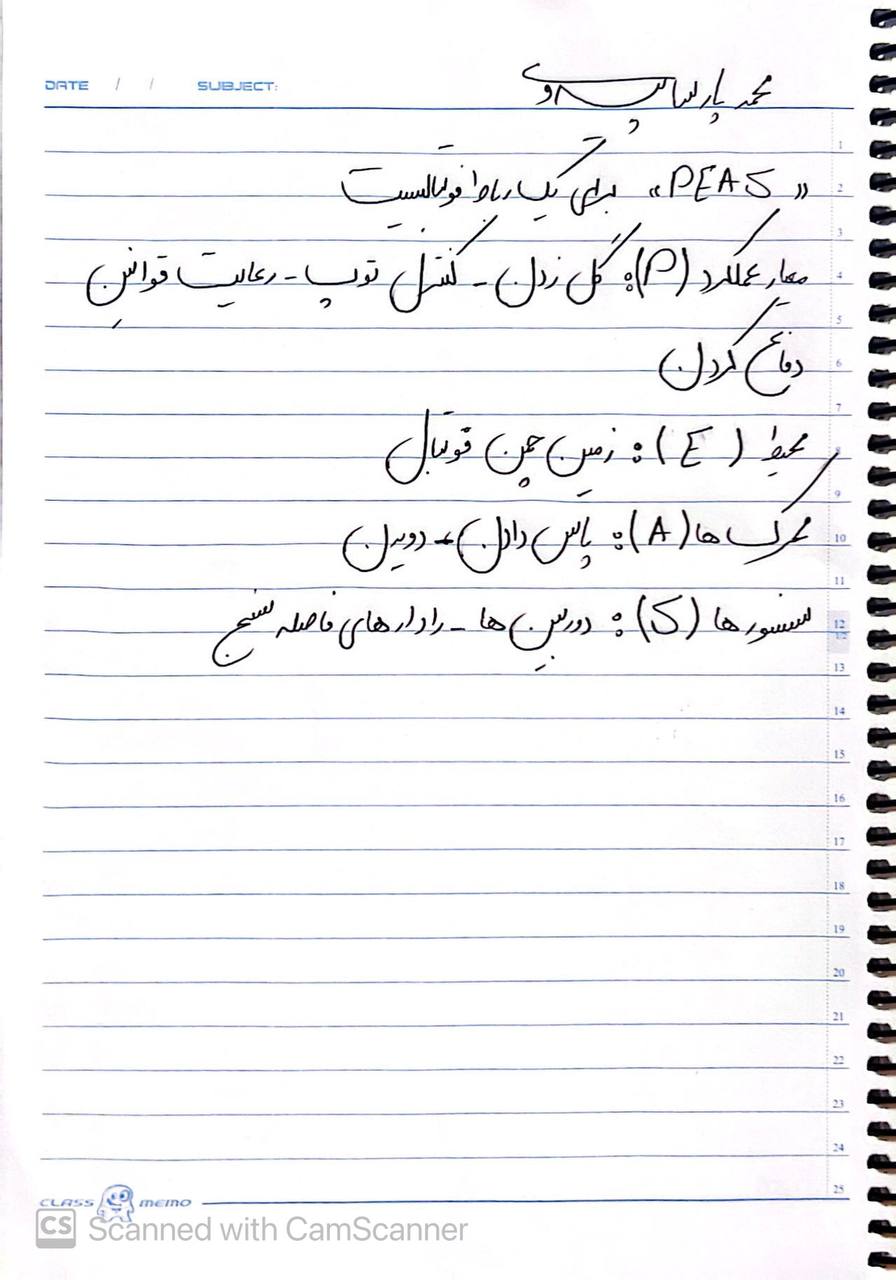 DATE / / SUBJECT:
محمد پارسا
«PEAS» برای یک ربات فوتبالیست
معیار عملکرد (P): گل زدن - کنترل توپ - رعایت قوانین
دفاع کردن
محیط (E): زمین چمن فوتبال
محرک ها (A): پاس دادن - دویدن
سنسورها (S): دوربین ها - رادارهای فاصله سنج
1
2
3
4
5
6
7
8
9
10
11
12
1/2
13
14
15
16
17
18
19
20
21
22
23
24
25
CLASS MEMO
CS Scanned with CamScanner